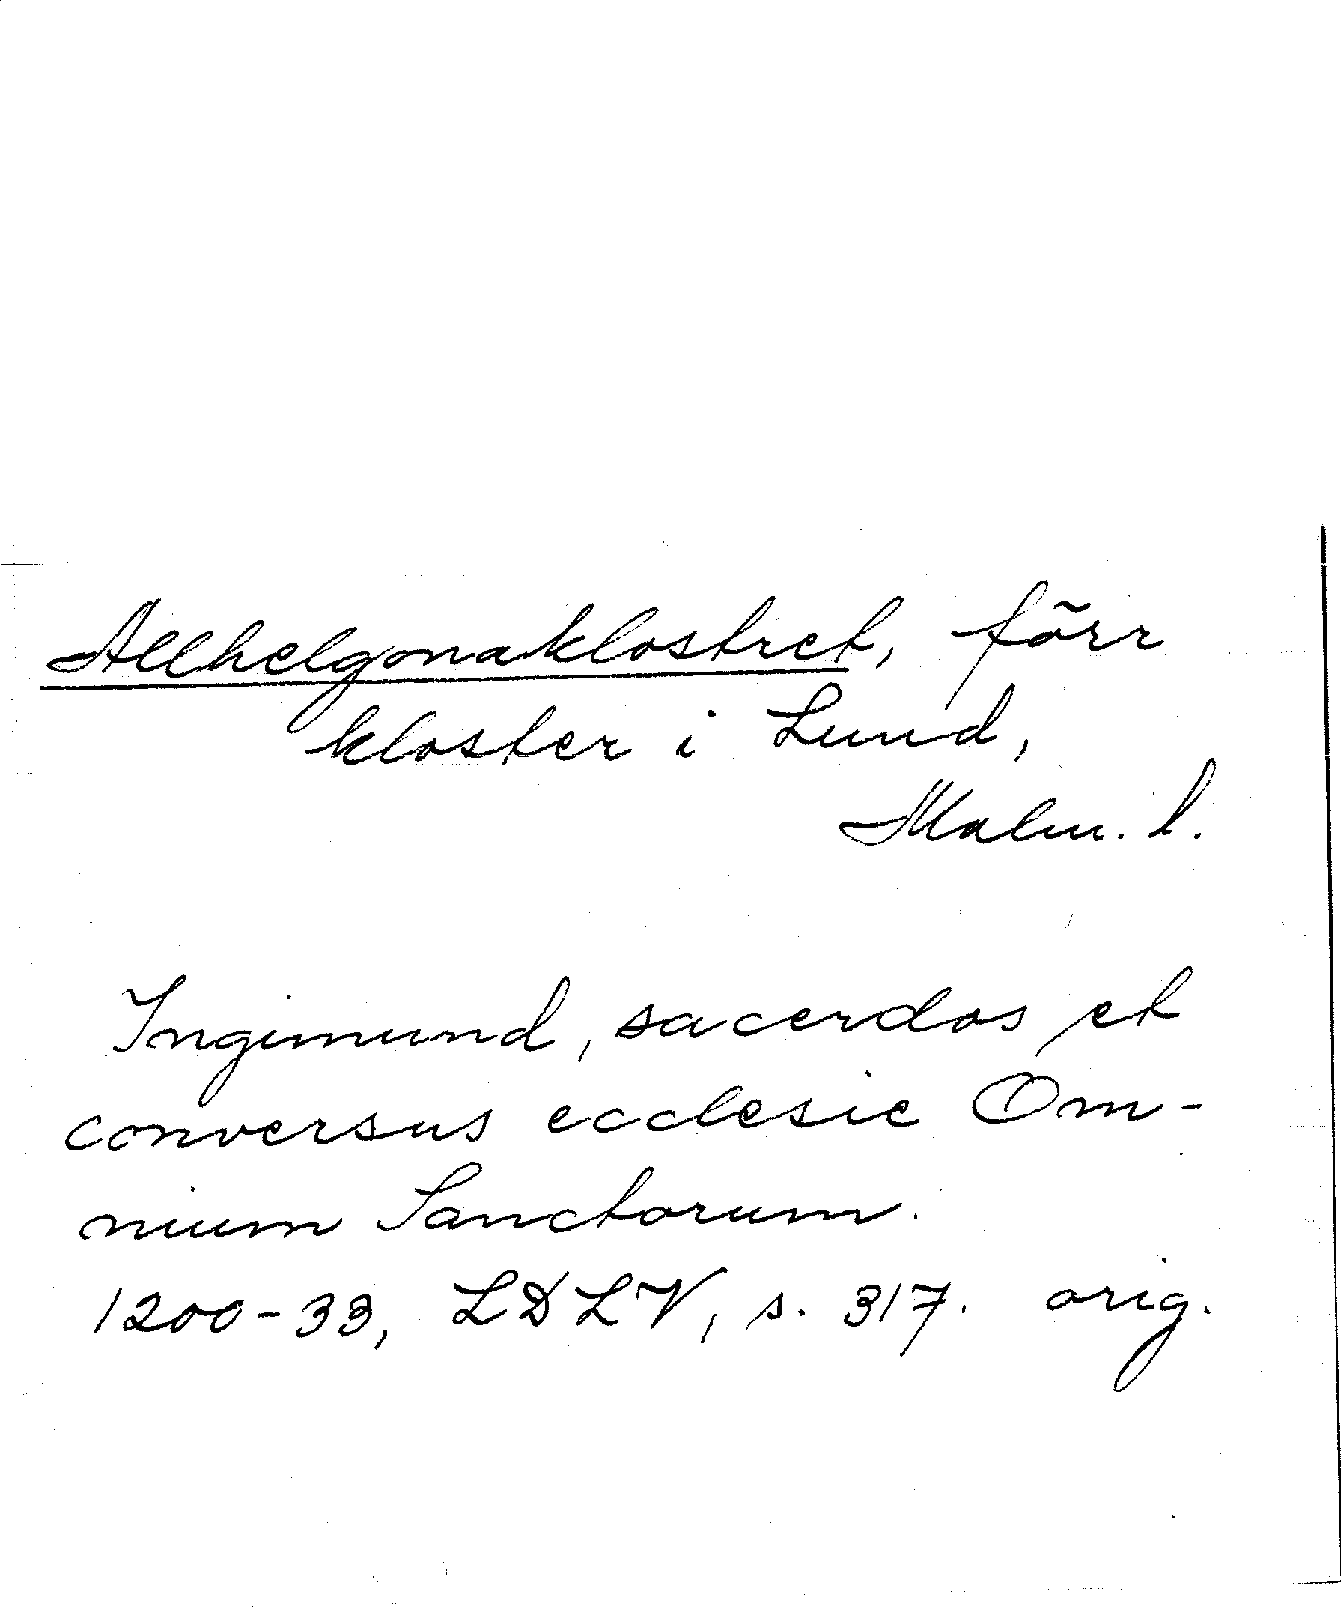 Allhelgonaklostret, förr
kloster i Lund,
Malm. l.
Ingimund, sacerdos et
conversus ecclesie Om-
nium Sanctorum.
1200-33, LDLV, s. 317. orig.